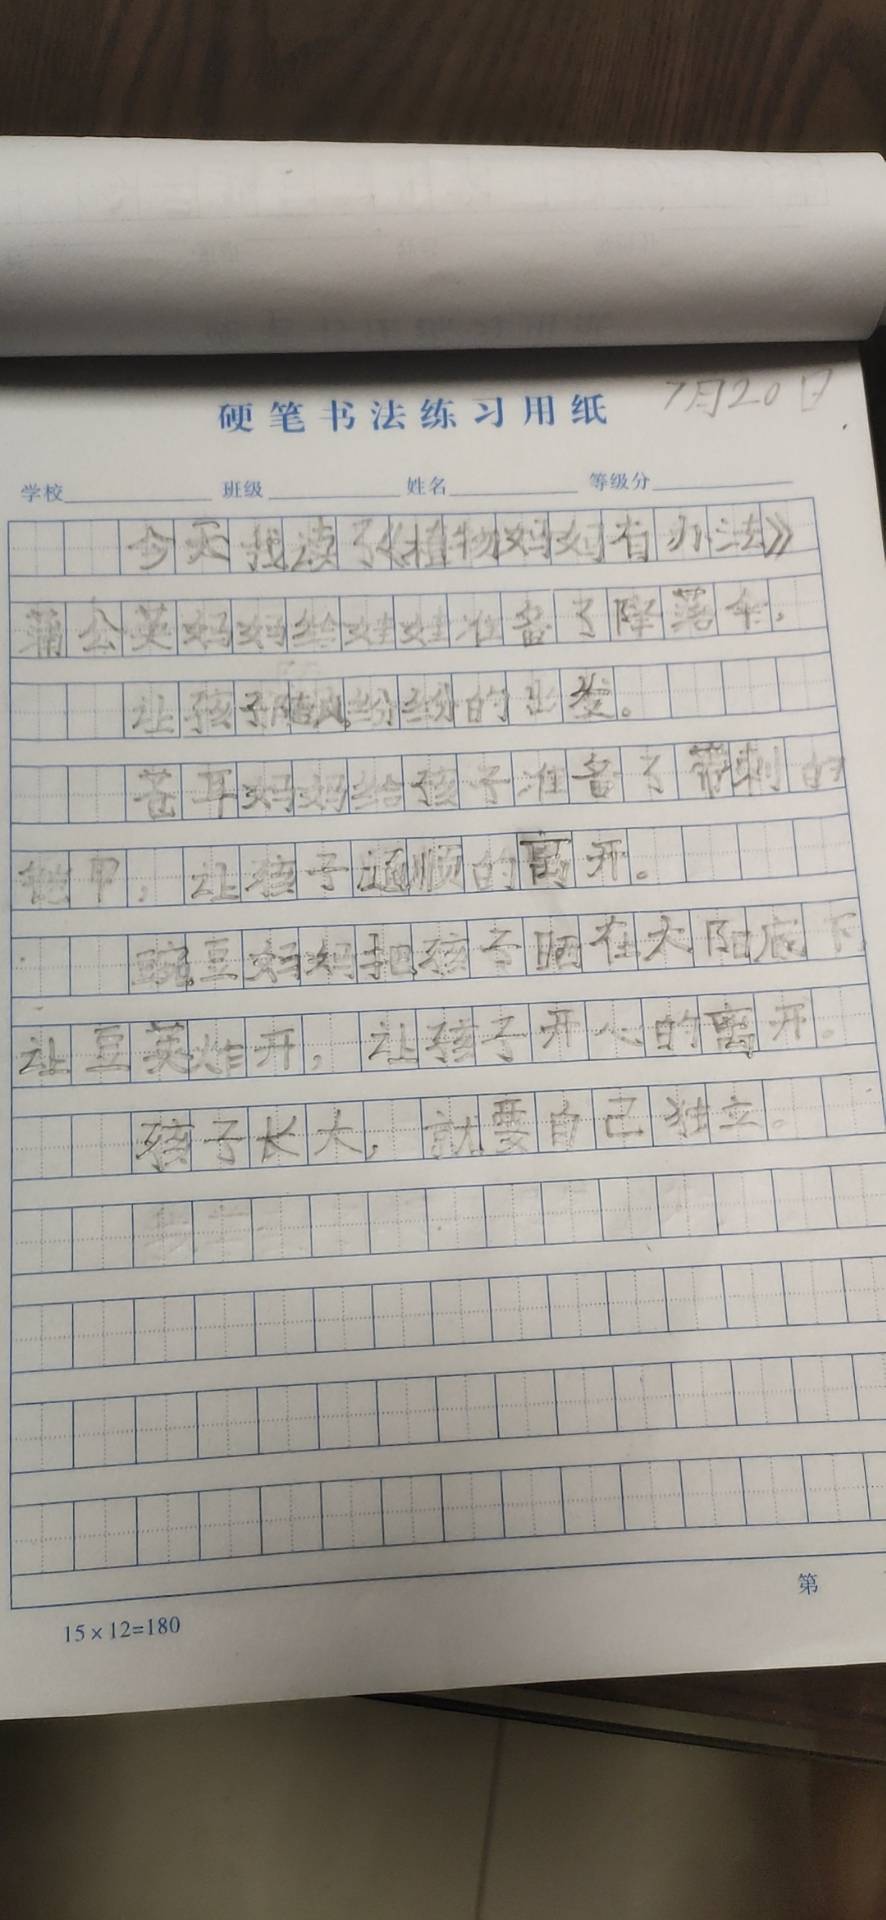 7月20日
硬笔书法练习用纸
学校 班级 姓名 等级分
今天我读了《植物妈妈有办法》
蒲公英妈妈给娃娃准备了降落伞,
让孩子随风纷纷的出发。
苍耳妈妈给孩子准备了带刺的
铠甲,让孩子通顺的离开。
豌豆妈妈把孩子晒在太阳底下
让豆荚炸开,让孩子开心的离开。
孩子长大,就要自己独立。
第
15×12=180